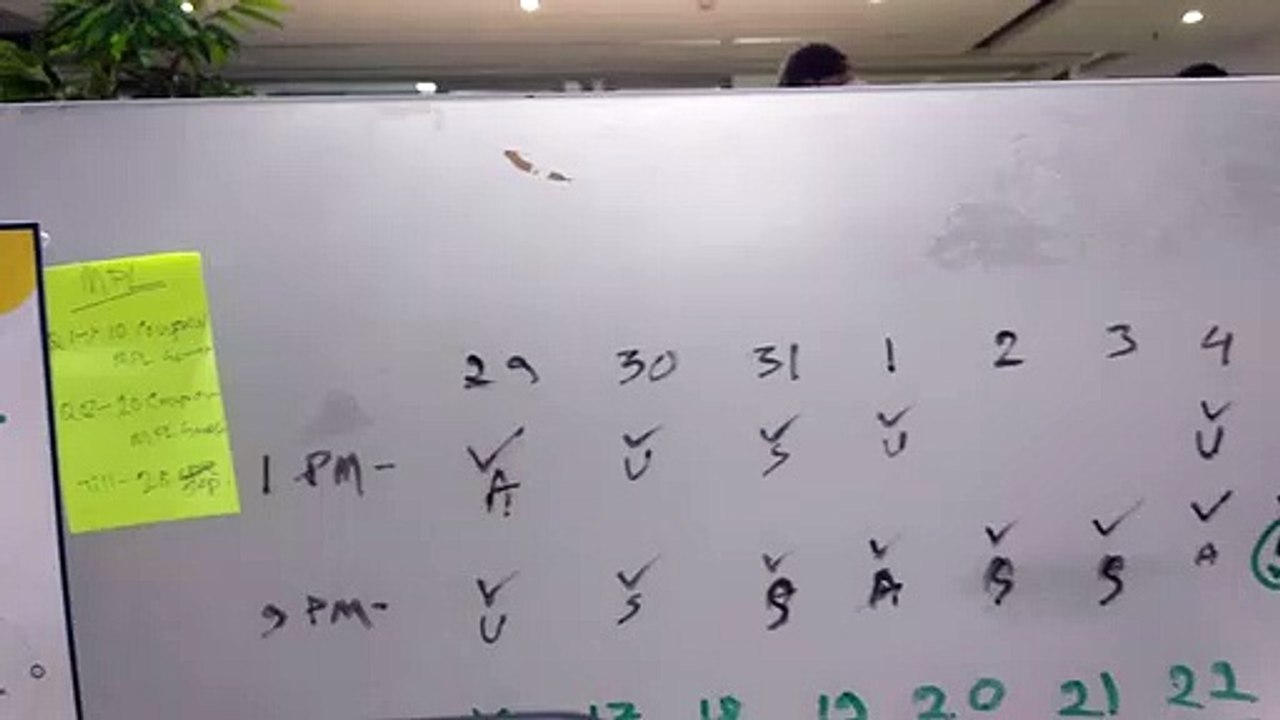 MPL
Q1-> 10 Coupons
MPL Games
Q2 - 20 Coupon
MPL Games
Till - 25 Sep
29 30 31 1 2 3 4
1 PM - ✓ ✓ ✓ ✓ ✓
A U S U U
9 PM - ✓ ✓ ✓ ✓ ✓ ✓ ✓
U S S A S S A
17 18 19 20 21 22